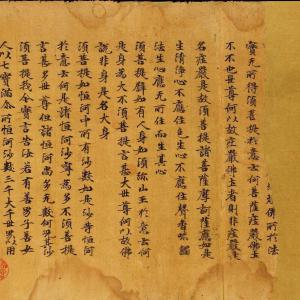 佛所於法
實无所得須菩提於意云何菩薩莊嚴佛土
不不也世尊何以故莊嚴佛土者則非莊嚴是
名莊嚴是故須菩提諸菩薩摩訶薩應如是
生清淨心不應住色生心不應住聲香味觸
法生心應无所住而生其心
須菩提譬如有人身如須弥山王於意云何
是身為大不須菩提言甚大世尊何以故佛
說非身是名大身
須菩提如恒河中所有沙數如是沙等恒河
於意云何是諸恒河沙寧為多不須菩提
言甚多世尊但諸恒河尚多无數何況其沙
須菩提我今實言告汝若有善男子善女
人以七寶滿尒所恒河沙數三千大千世界以用